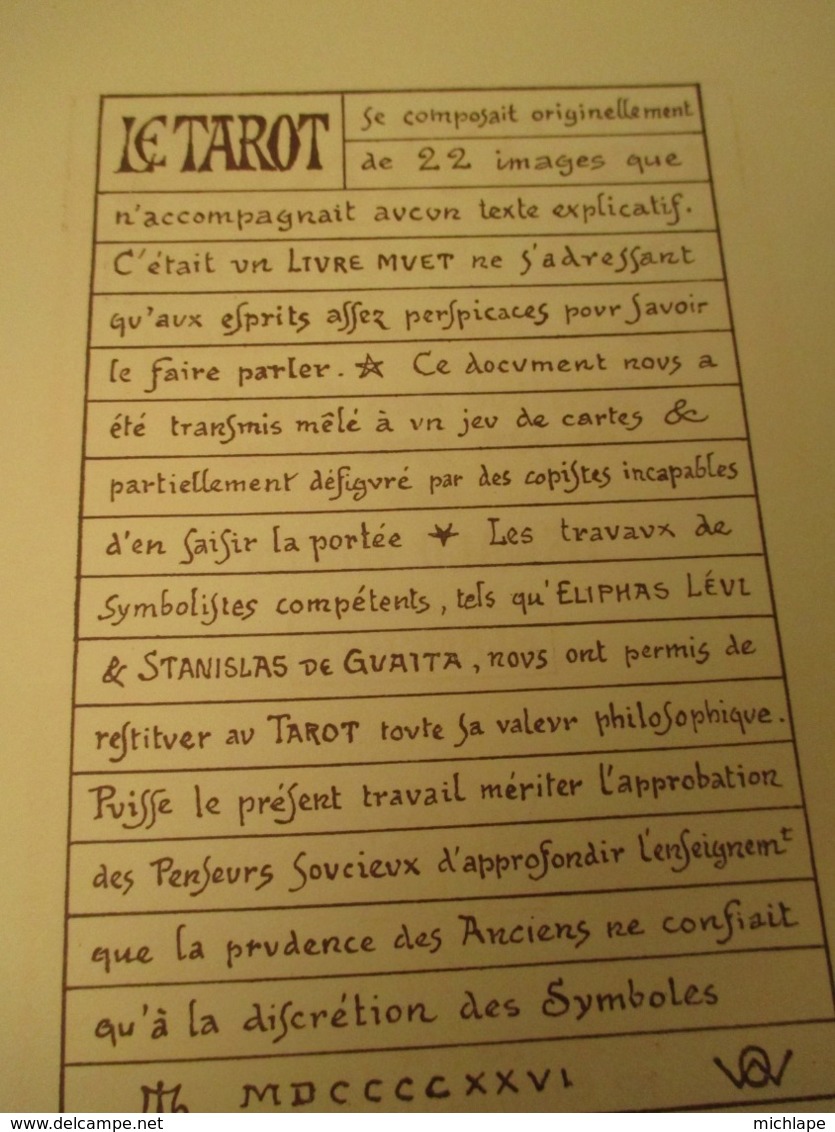 LE TAROT
se composait originellement
de 22 images que
n'accompagnait avcvn texte explicatif.
C'était vn LIVRE MVET ne s'adressant
qv'avx esprits assez perspicaces povr savoir
le faire parler. ☆ Ce docvment novs a
été transmis mêlé à vn jev de cartes &
partiellement défigvré par des copistes incapables
d'en saisir la portée ★ Les travavx de
Symbolistes compétents, tels qv'ELIPHAS LÉVI
& STANISLAS DE GVAITA, novs ont permis de
restitver av TAROT tovte sa valevr philosophiqve.
Pvisse le présent travail mériter l'approbation
des Pensevrs Sovcievx d'approfondir l'enseignemt
qve la prvdence des Anciens ne confiait
qv'à la discrétion des Symboles
MDCCCCXXVI
delcampe.net
michlape